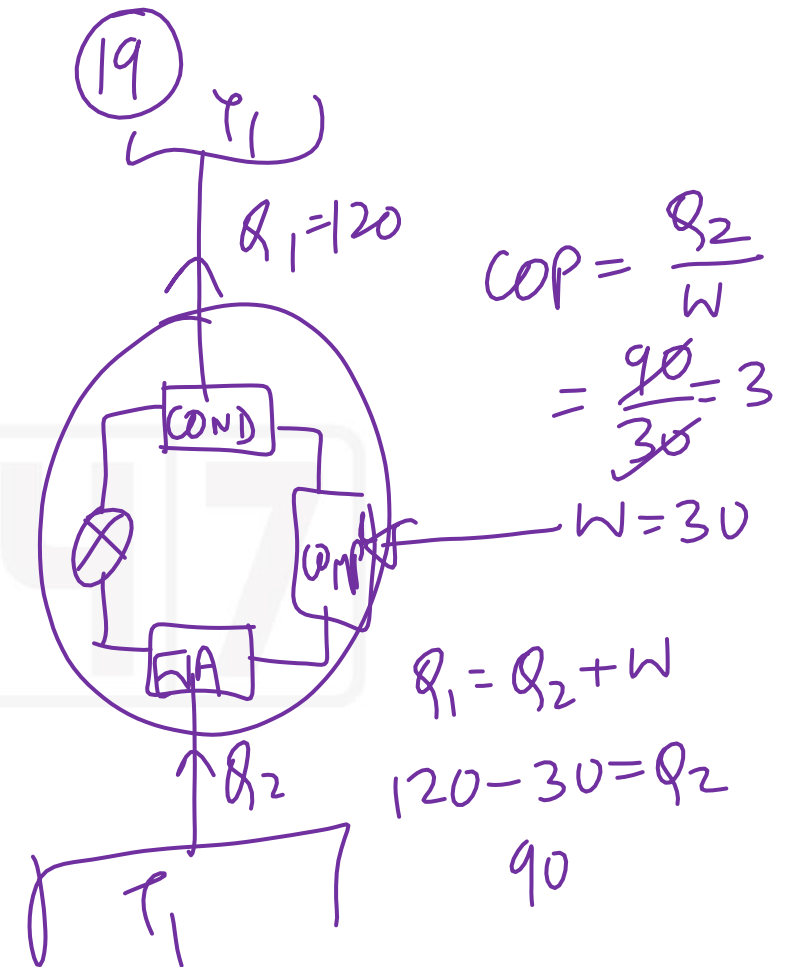 19
T1
Q1=120
COP = Q2/W
= 90/30 = 3
COND
W=30
COMP
EVA
Q1 = Q2 + W
Q2
120-30=Q2
90
T1